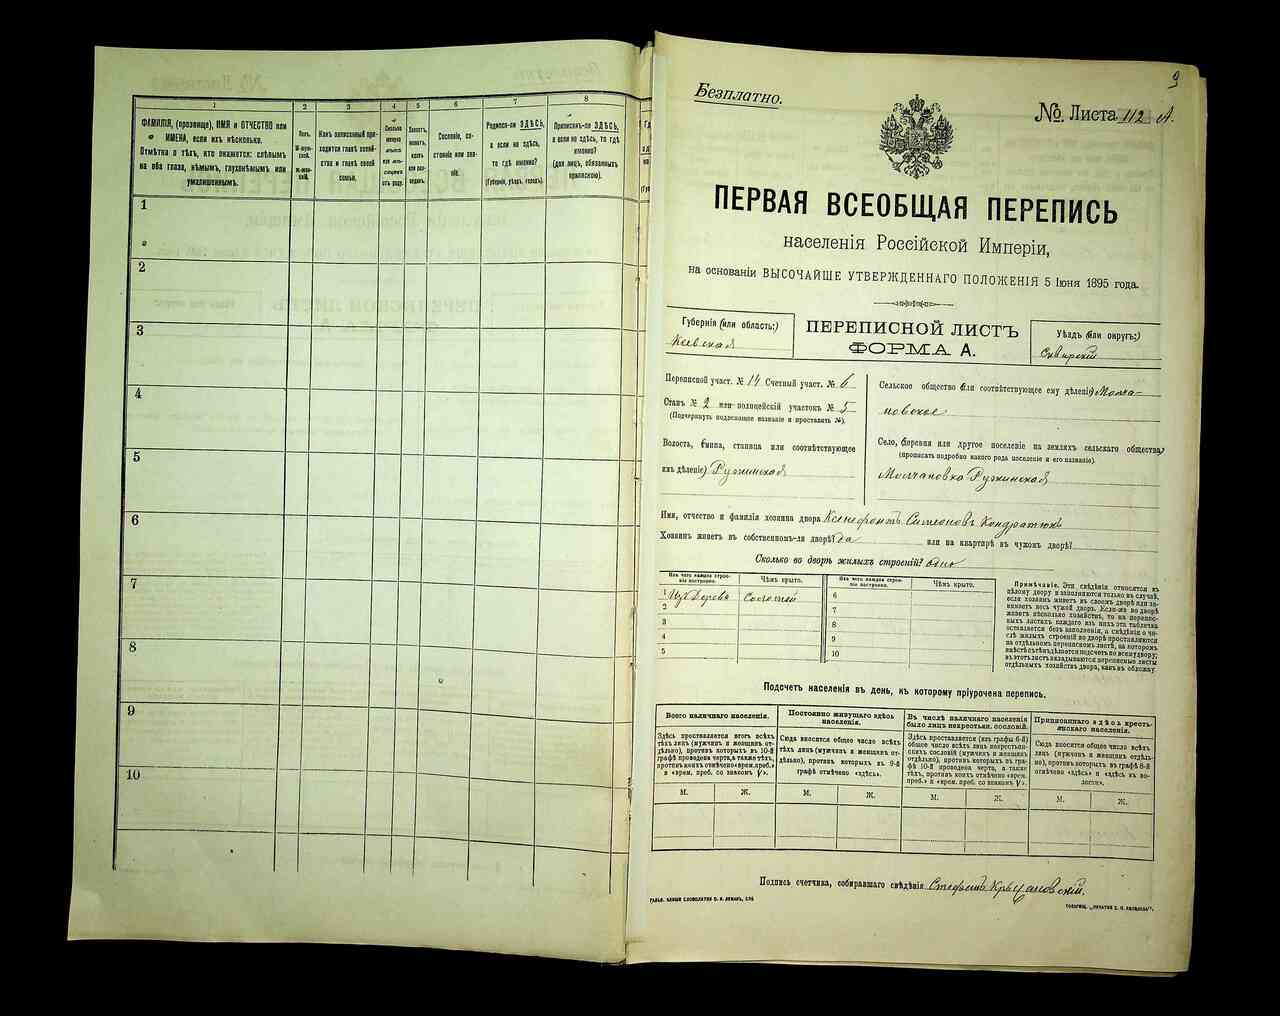 1
2
3
4
5
6
7
8
ФАМИЛІЯ, (прозвище), ИМЯ и ОТЧЕСТВО или
ИМЕНА, если ихъ нѣсколько.
Отмѣтка о тѣхъ, кто окажется: слѣпымъ
на оба глаза, нѣмымъ, глухонѣмымъ или
умалишеннымъ.
Полъ.
М-муж-
ской.
Ж-жен-
скій.
Какъ записанный при-
ходится главѣ хозяй-
ства и главѣ своей
семьи.
Сколько
минуло
лѣтъ
или мѣ-
сяцевъ
отъ роду.
Холостъ,
женатъ,
вдовъ
или раз-
веденъ.
Сословіе, со-
стояніе или зва-
ніе.
Родился-ли ЗДѢСЬ,
а если не здѣсь,
то гдѣ именно?
(Губернія, уѣздъ, городъ).
Приписанъ-ли ЗДѢСЬ,
а если не здѣсь, то гдѣ
именно?
(для лицъ, обязанныхъ
припискою).
1
2
3
4
5
6
7
8
9
10
9
Безплатно.
№ Листа 112 А.
ПЕРВАЯ ВСЕОБЩАЯ ПЕРЕПИСЬ
населенія Россійской Имперіи,
на основаніи ВЫСОЧАЙШЕ УТВЕРЖДЕННАГО ПОЛОЖЕНІЯ 5 Іюня 1895 года.
Губернія (или область:)
Кіевская
ПЕРЕПИСНОЙ ЛИСТЪ
ФОРМА А.
Уѣздъ (или округъ:)
Сквирскій
Переписной участ. № 14 Счетный участ. № 6
Станъ № 2 или полицейскій участокъ № 5
(Подчеркнуть подлежащее названіе и проставить №).
Волость, (гмина, станица или соотвѣтствующее
имъ дѣленіе) Ружинская
Сельское общество (или соотвѣтствующее ему дѣленіе) Молча-
новское
Село, (деревня или другое поселеніе на земляхъ сельскаго общества)
(прописать подробно какого рода поселеніе и его названіе).
Молчановка Ружинская
Имя, отчество и фамилія хозяина двора Ксенофонтъ Симеоновъ Кондратюкъ
Хозяинъ живетъ въ собственномъ-ли дворѣ? да или на квартирѣ въ чужомъ дворѣ?
Сколько во дворѣ жилыхъ строеній? одно
Изъ чего каждое строе-
ніе построено.
Чѣмъ крыто.
Изъ чего каждое строе-
ніе построено.
Чѣмъ крыто.
1 Изъ Дерева Соломой
2
3
4
5
6
7
8
9
10
Примѣчаніе. Эти свѣдѣнія относятся къ
цѣлому двору и заполняются только въ случаѣ,
если хозяинъ живетъ въ своемъ дворѣ или за-
нимаетъ весь чужой дворъ. Если-же во дворѣ
живетъ нѣсколько хозяйствъ, то на перепис-
ныхъ листахъ каждаго изъ нихъ эта табличка
оставляется безъ заполненія, а свѣдѣнія о чи-
слѣ жилыхъ строеній во дворѣ проставляются
на отдѣльномъ переписномъ листѣ, на которомъ
вмѣстѣ съ тѣмъ дѣлается подсчетъ по всему двору;
въ этотъ листъ вкладываются переписные листы
отдѣльныхъ хозяйствъ двора, какъ въ обложку.
Подсчетъ населенія въ день, къ которому пріурочена перепись.
Всего наличнаго населенія.
Здѣсь проставляется итогъ всѣхъ
тѣхъ лицъ (мужчинъ и женщинъ от-
дѣльно), противъ которыхъ въ 10-й
графѣ проведена черта, а также тѣхъ,
противъ коихъ отмѣчено «врем. преб.»
и «врем. преб. со знакомъ V».
Постоянно живущаго здѣсь
населенія.
Сюда вносится общее число всѣхъ
тѣхъ лицъ (мужчинъ и женщинъ от-
дѣльно), противъ которыхъ въ 9-й
графѣ отмѣчено «здѣсь».
Въ числѣ наличнаго населенія
было лицъ некрестьян. сословій.
Здѣсь проставляется (изъ графы 6-й)
общее число всѣхъ лицъ некрестьян-
скихъ сословій (мужчинъ и женщинъ
отдѣльно), противъ которыхъ въ гра-
фѣ 10-й проведена черта, а также
тѣхъ, противъ коихъ отмѣчено «врем.
преб.» и «врем. преб. со знакомъ V».
Приписаннаго здѣсь кресть-
янскаго населенія.
Сюда вносится общее число всѣхъ
лицъ (мужчинъ и женщинъ отдѣль-
но), противъ которыхъ въ графѣ 8-й
отмѣчено «здѣсь» и «здѣсь къ во-
лости».
М.
Ж.
М.
Ж.
М.
Ж.
М.
Ж.
Подпись счетчика, собиравшаго свѣдѣнія Стефанъ